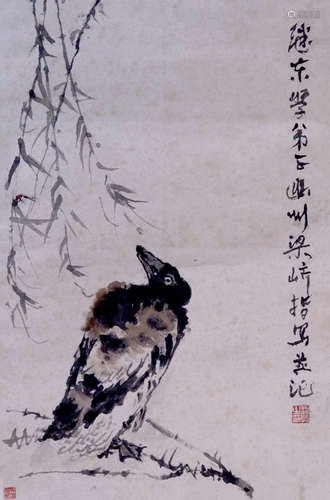 继东学弟正幽州梁崎指写并记